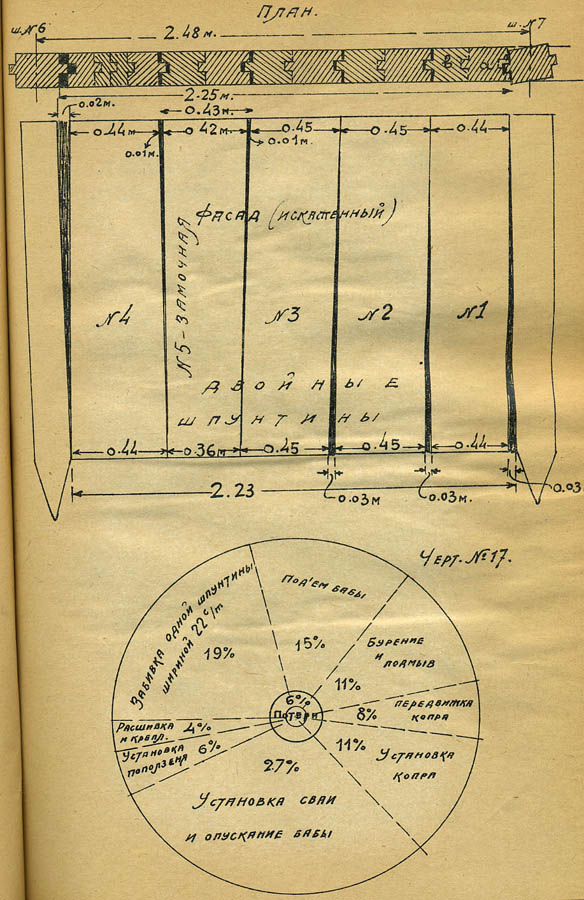 План.
ш. №6
ш. №7
2.48 м.
в
а
2.25 м.
0.02 м.
0.43 м.
0.44 м
0.42 м.
0.45
0.45
0.44
0.01 м.
0.01 м.
Фасад (искаженный)
№4
№5 - замочная
№3
№2
№1
Двойные
шпунтины
0.44
0.36 м
0.45
0.45
0.44
2.23
0.03 м
0.03 м.
0.03
Черт. №17.
Забивка одной шпунтины
шириной 22 с/m
19%
Под'ем бабы
15%
Бурение
и
подмыв
11%
передвижка
копра
8%
Установка
копра
11%
6%
Потери
Расшивка
и крепл.
4%
Установка
поползена
6%
27%
Установка сваи
и опускание бабы